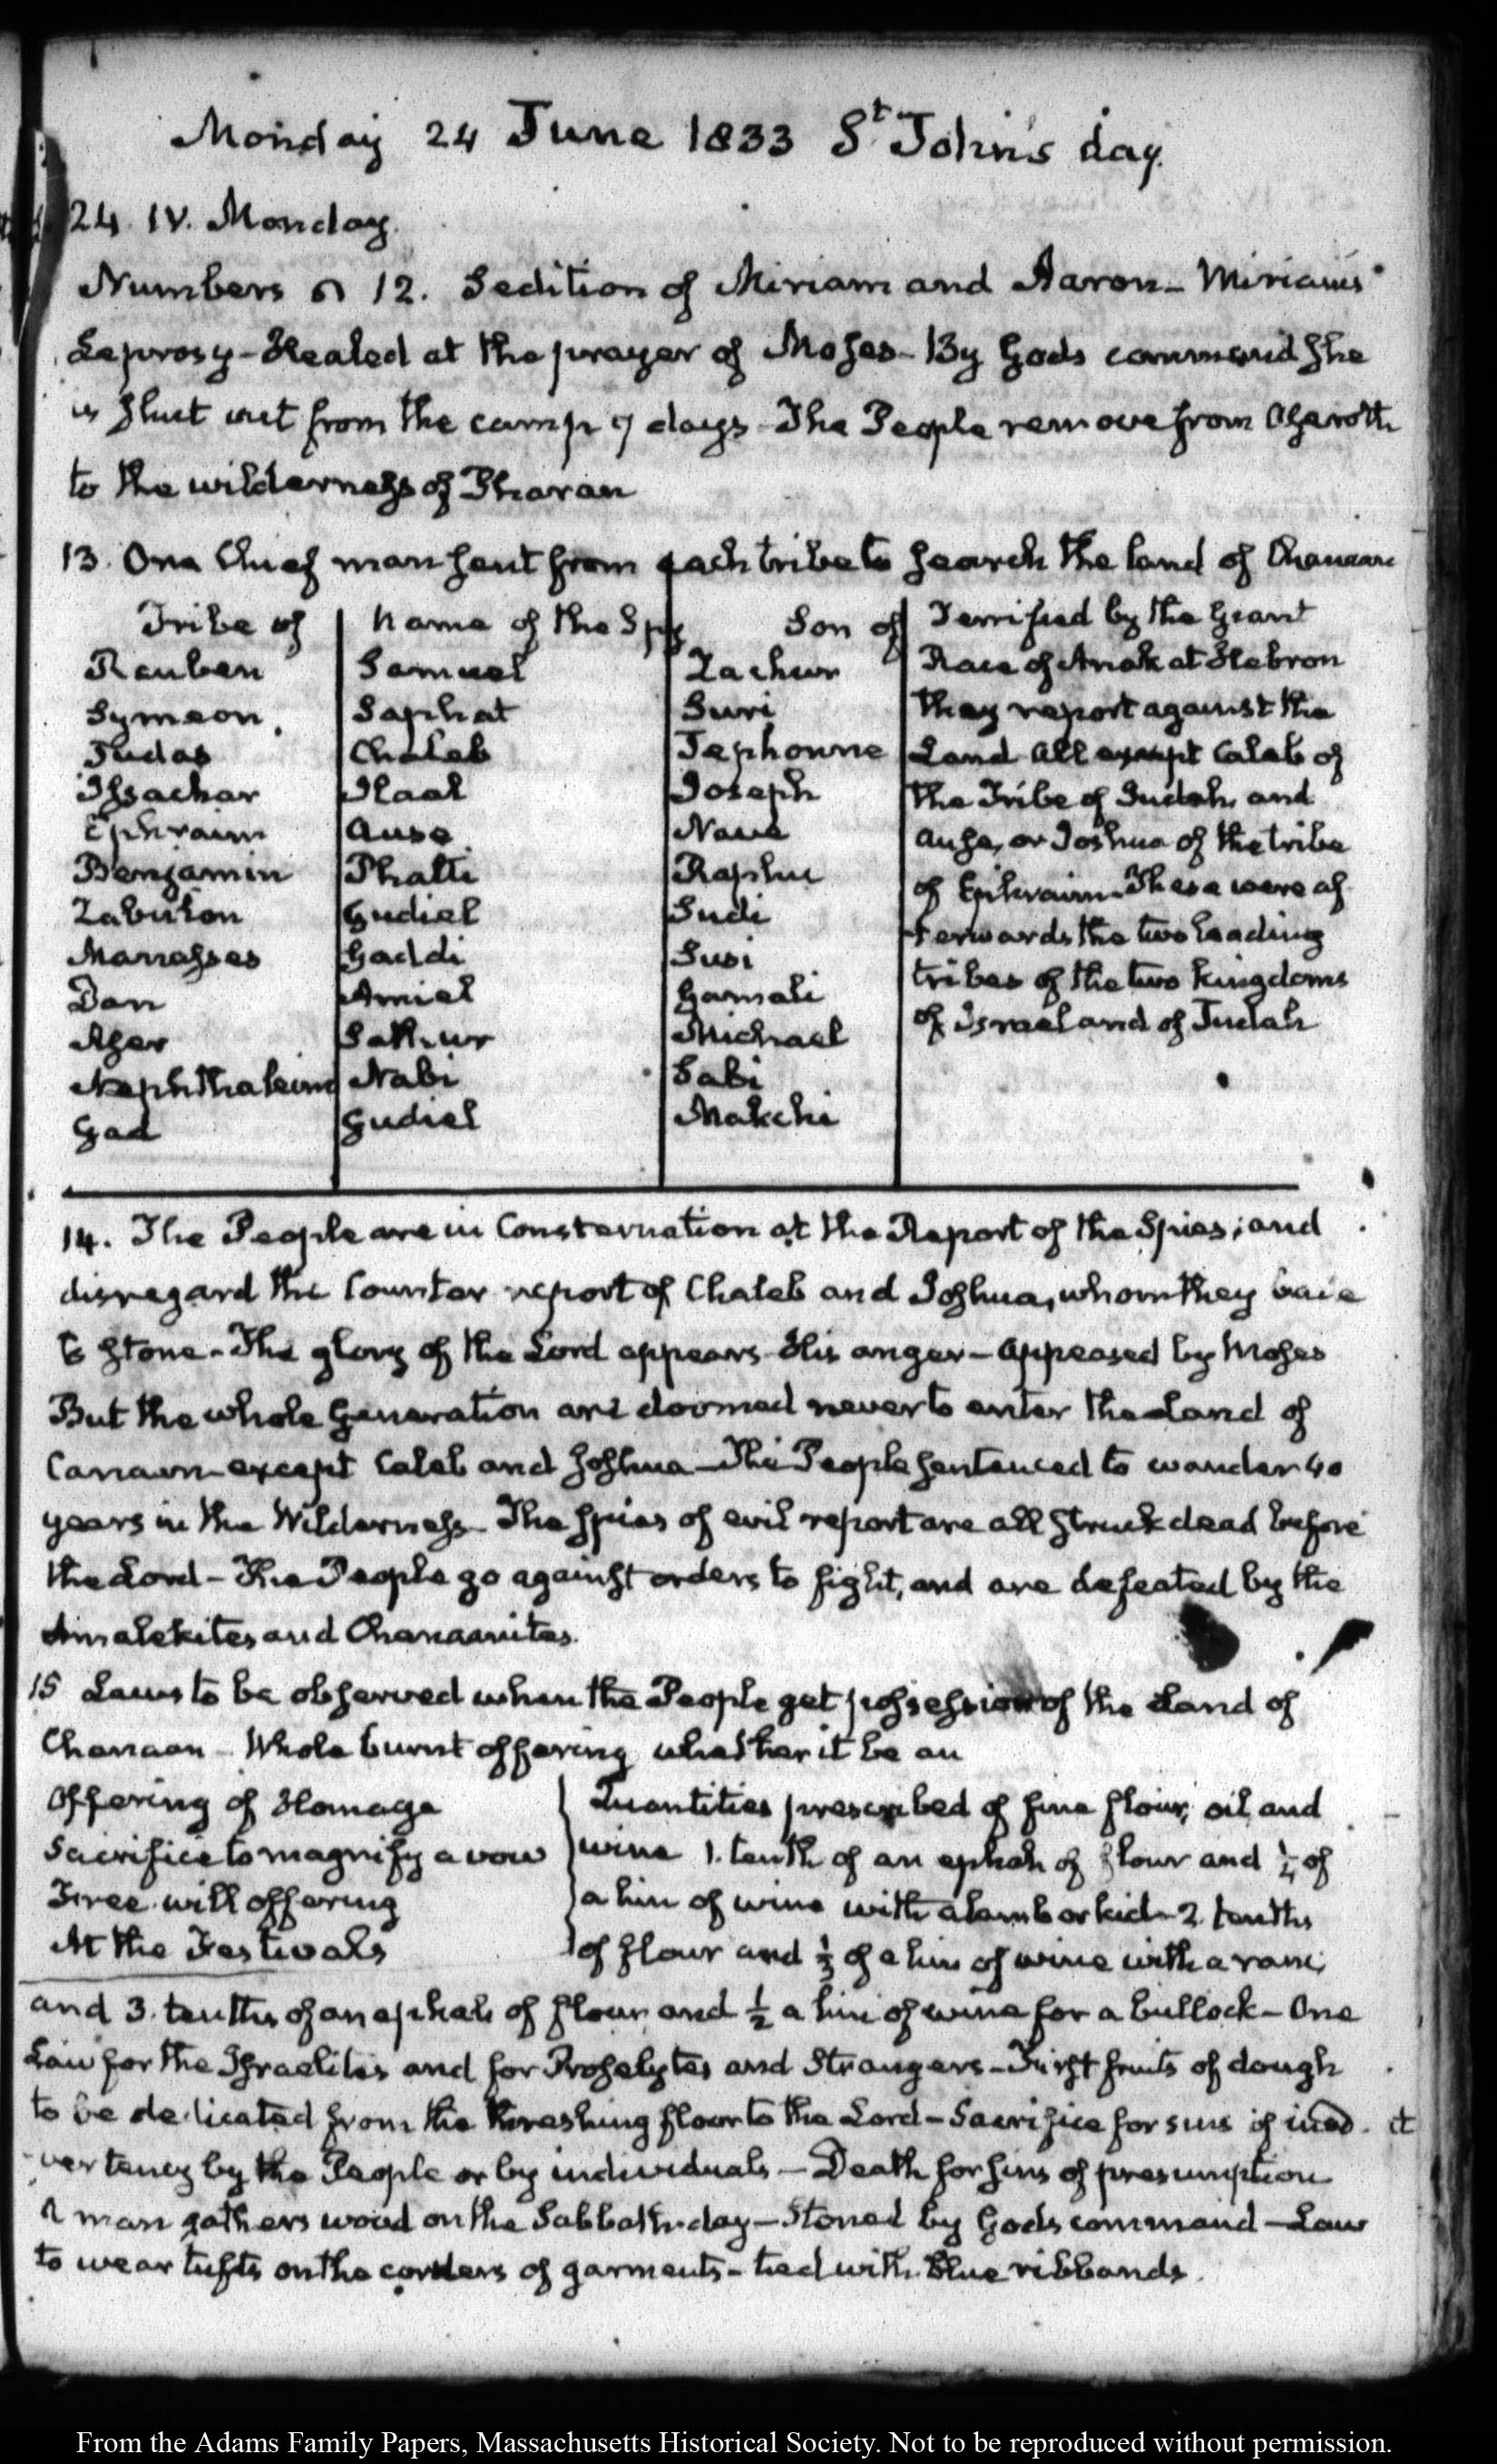 Monday 24 June 1833 St John's day.
24. IV. Monday.
Numbers 12. Sedition of Miriam and Aaron - Miriam's
Leprosy - Healed at the prayer of Moses - By Gods command she
is shut out from the camp 7 days - The People remove from Aseroth
to the wilderness of Pharan
13. One Chief man sent from each tribe to search the land of Chanaan
Tribe of | Name of the Spy | Son of
Reuben | Samuel | Zachur
Symeon. | Saphat | Suri
Judas | Chaleb | Jephonne
Issachar | Ilaal | Joseph
Ephraim | Ause | Naue
Benjamin | Phalti | Raphu
Zabulon | Gudiel | Sudi
Manasses | Gaddi | Susi
Dan | Amiel | Gamali
Aser | Sathur | Michael
Nephthaleim | Nabi | Sabi
Gad | Gudiel | Makchi
Terrified by the Giant
Race of Anak at Hebron
they report against the
Land all except Caleb of
the Tribe of Judah, and
Ause, or Joshua of the tribe
of Ephraim - These were af-
terwards the two leading
tribes of the two kingdoms
of Israel and of Judah
14. The People are in Consternation at the Report of the Spies; and
disregard the Counter report of Chaleb and Joshua, whom they
to stone - The glory of the Lord appears - His anger - appeased by Moses
But the whole Generation are doomed never to enter the Land of
Canaan - except Caleb and Joshua - The People sentenced to wander 40
years in the Wilderness - The spies of evil report are all struck dead before
the Lord - The People go against orders to fight, and are defeated by the
Amalekites and Chanaanites.
15 Laws to be observed when the People get possession of the Land of
Chanaan - Whole burnt offering whether it be an
Offering of Homage
Sacrifice to magnify a vow
Free will offering
At the Festivals
Quantities prescribed of fine flour, oil, and
wine 1. tenth of an ephah of flour and 1/4 of
a hin of wine with a lamb or kid - 2. tenths
of flour and 1/3 of a hin of wine with a ram,
and 3. tenths of an ephah of flour and 1/2 a hin of wine for a bullock - One
Law for the Israelites and for Proselytes and Strangers - First fruits of dough
to be dedicated from the threshing floor to the Lord - Sacrifice for sins of inad-
vertency by the People or by individuals - Death for sins of presumption
A man gathers wood on the Sabbath-day - Stoned by Gods command - Law
to wear tufts on the corners of garments - tied with blue ribbands.
From the Adams Family Papers, Massachusetts Historical Society. Not to be reproduced without permission.